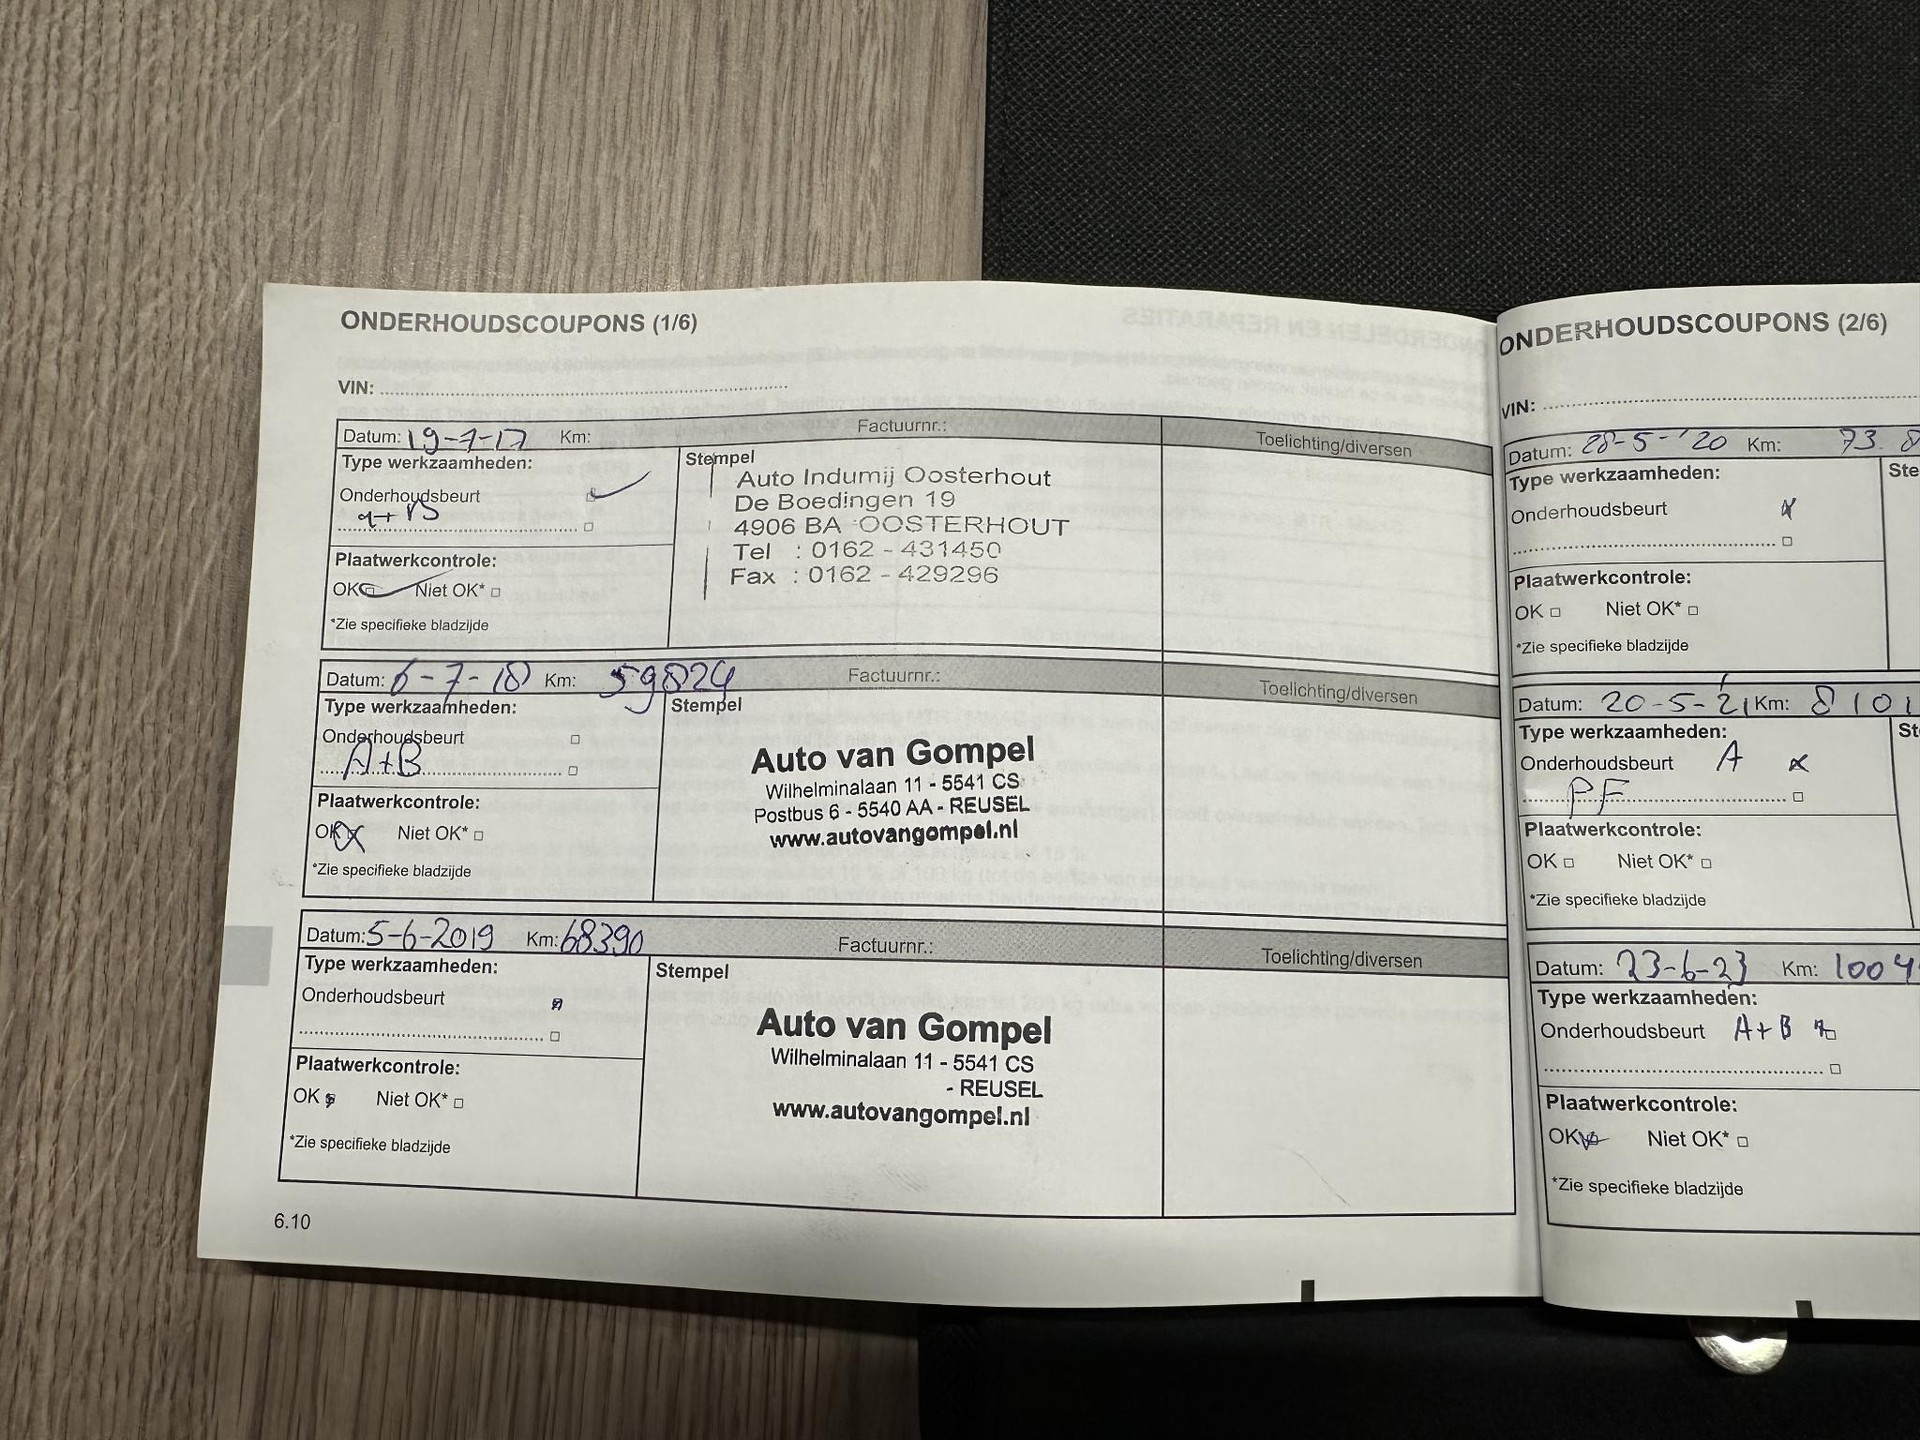 ONDERHOUDSCOUPONS (1/6)
VIN:
Datum: 19-7-17 Km: Factuurnr.: Toelichting/diversen
Type werkzaamheden: Stempel
Onderhoudsbeurt
Auto Indumij Oosterhout
De Boedingen 19
4906 BA OOSTERHOUT
Tel : 0162 - 431450
Fax : 0162 - 429296
Plaatwerkcontrole:
OK Niet OK*
*Zie specifieke bladzijde
Datum: 6-7-18 Km: 59824 Factuurnr.: Toelichting/diversen
Type werkzaamheden: Stempel
Onderhoudsbeurt
A+B
Auto van Gompel
Wilhelminalaan 11 - 5541 CS
Postbus 6 - 5540 AA - REUSEL
www.autovangompel.nl
Plaatwerkcontrole:
OK Niet OK*
*Zie specifieke bladzijde
Datum: 5-6-2019 Km: 68390 Factuurnr.: Toelichting/diversen
Type werkzaamheden: Stempel
Onderhoudsbeurt
Auto van Gompel
Wilhelminalaan 11 - 5541 CS
- REUSEL
www.autovangompel.nl
Plaatwerkcontrole:
OK Niet OK*
*Zie specifieke bladzijde
6.10
ONDERHOUDSCOUPONS (2/6)
VIN:
Datum: 28-5-'20 Km: 73.8
Type werkzaamheden: Ste
Onderhoudsbeurt
Plaatwerkcontrole:
OK Niet OK*
*Zie specifieke bladzijde
Datum: 20-5-21 Km: 8101
Type werkzaamheden: St
Onderhoudsbeurt A
PF
Plaatwerkcontrole:
OK Niet OK*
*Zie specifieke bladzijde
Datum: 23-6-23 Km: 1004
Type werkzaamheden:
Onderhoudsbeurt A+B
Plaatwerkcontrole:
OK Niet OK*
*Zie specifieke bladzijde